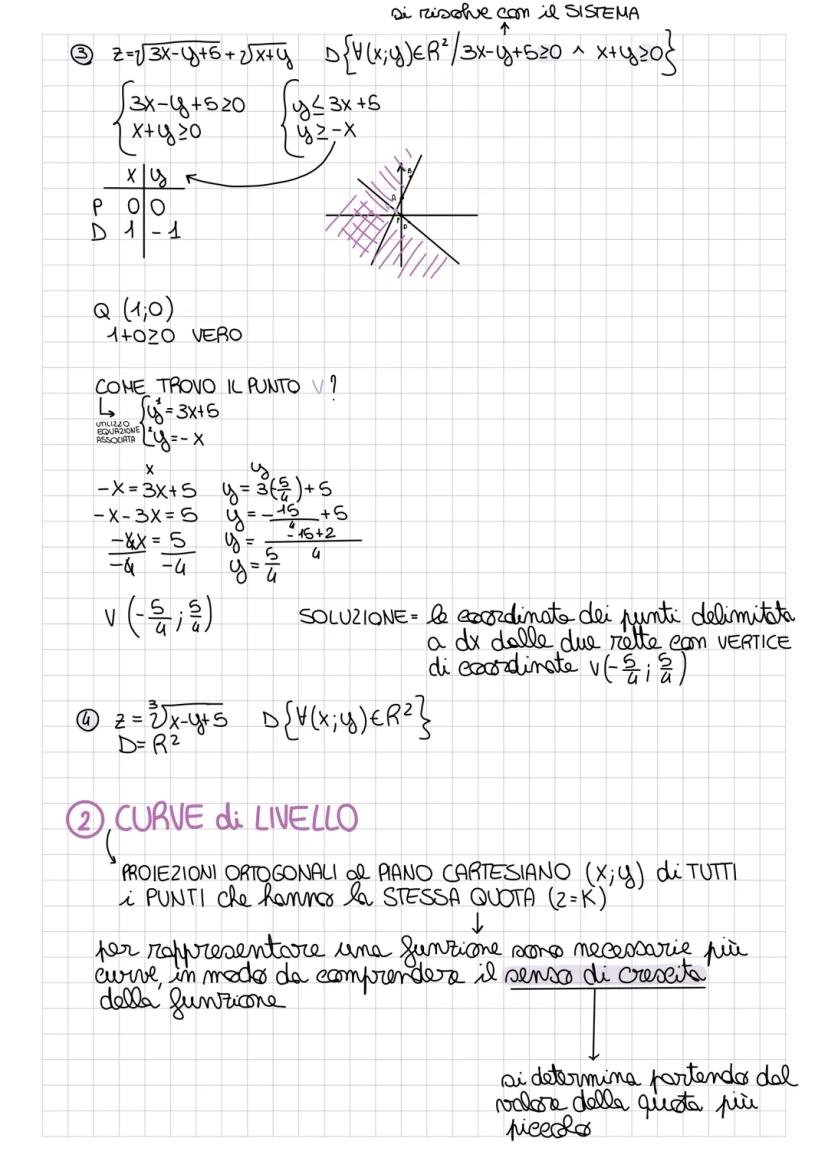 si risolve con il SISTEMA
③ z=²√3x-y+5 + ²√x+y D{∀(x;y)∈R²/3x-y+5≥0 ^ x+y≥0}
{3x-y+5≥0 {y≤3x+5
x+y≥0 y≥-x
x | y
P 0 | 0
D 1 | -1
Q (1;0)
1+0≥0 VERO
COME TROVO IL PUNTO V?
UTILIZZO EQUAZIONE ASSOCIATA
{¹y=3x+5
²y=-x
x y
-x=3x+5 y=3(5/4)+5
-x-3x=5 y=-15/4+5
-4x/-4=5/-4 y=-15+2/4
y=5/4
V(-5/4;5/4) SOLUZIONE= le coordinate dei punti delimitata
a dx dalle due rette con VERTICE
di coordinate V(-5/4;5/4)
④ z=³√x-y+5 D{∀(x;y)∈R²}
D=R²
② CURVE di LIVELLO
PROIEZIONI ORTOGONALI al PIANO CARTESIANO (x;y) di TUTTI
i PUNTI che hanno la STESSA QUOTA (z=K)
per rappresentare una funzione sono necessarie più
curve, in modo da comprendere il senso di crescita
della funzione
si determina partendo dal
valore della quota più
piccolo